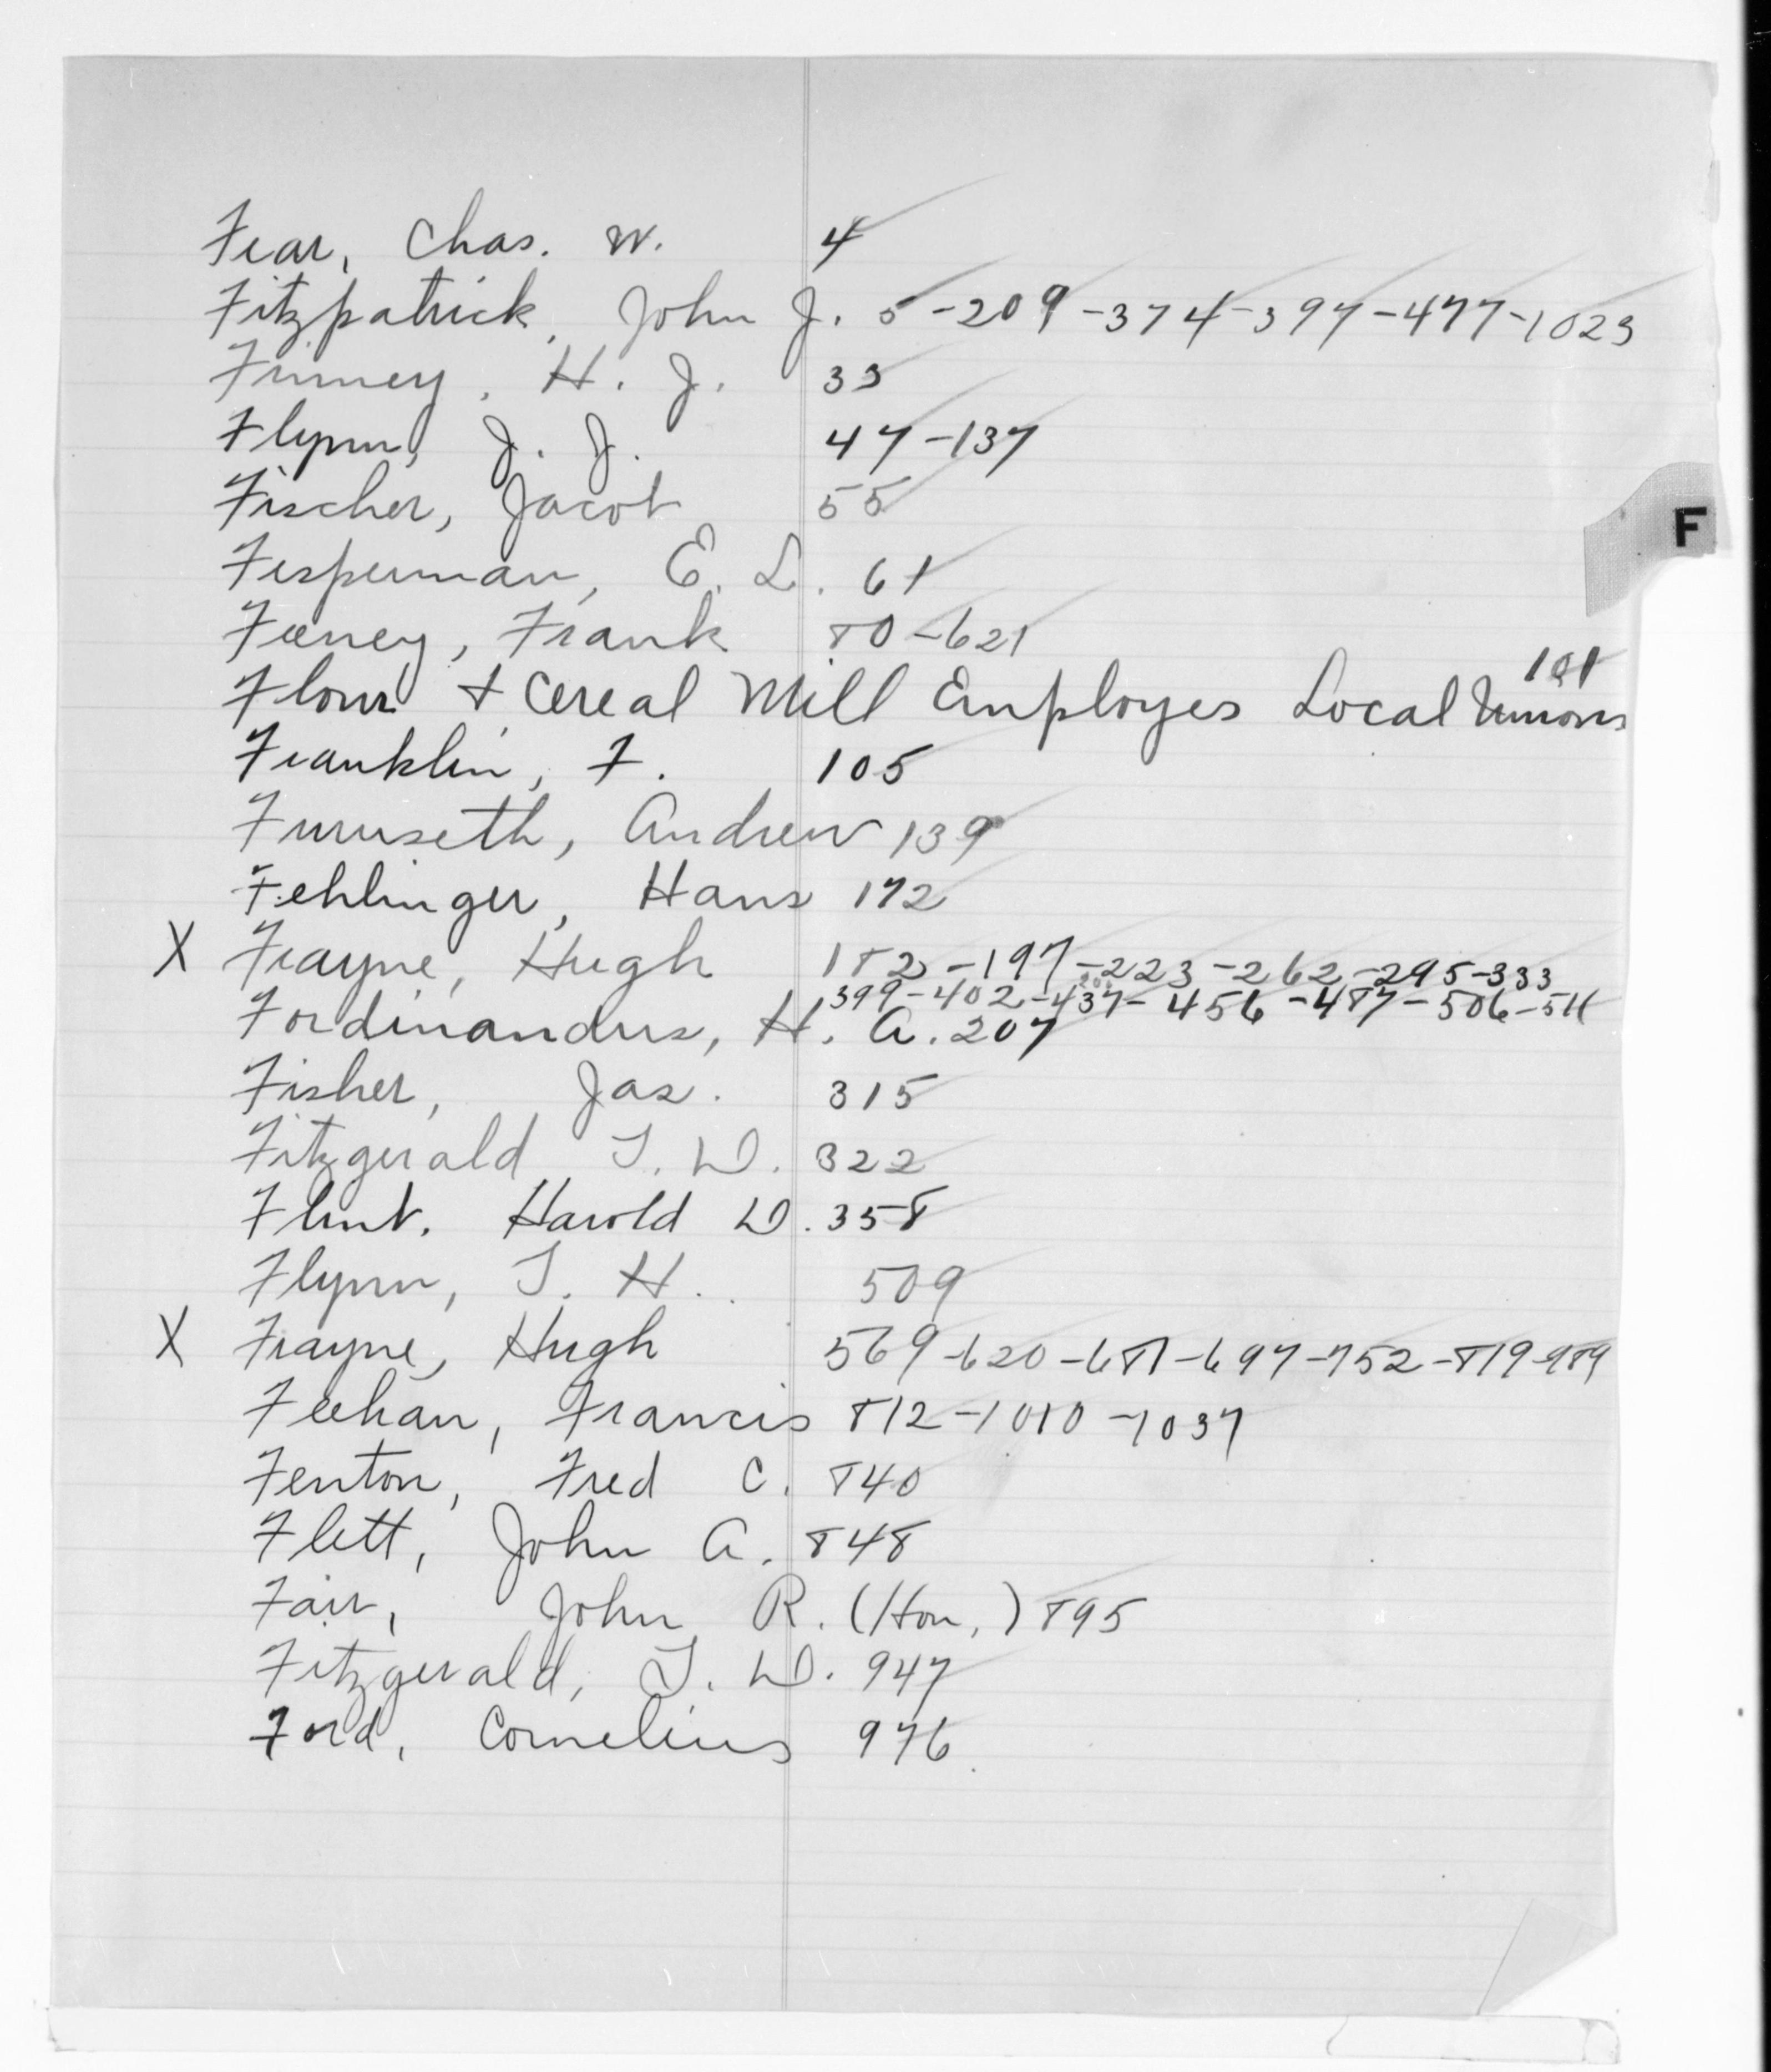 Fear, Chas. W. 4
Fitzpatrick, John J. 5-209-374-397-477-1023
Finney, H. J. 33
Flynn, J. J. 47-137
Fischer, Jacob 55
F
Fesperman, E. L. 61
Feeney, Frank 80-621
101
Flour & Cereal Mill Employes Local Unions
Franklin, F. 105
Furuseth, Andrew 139
Fehlinger, Hans 172
X Frayne, Hugh 182-197-223-262-295-333
399-402-437-456-487-506-511
Fordinandus, H. A. 207
Fisher, Jas. 315
Fitzgerald T. D. 322
Flint. Harold D. 358
Flynn, T. H. 509
X Frayne, Hugh 569-620-681-697-752-819-989
Feehan, Francis 812-1010-1037
Fenton, Fred C. 840
Flett, John A. 848
Fair, John R. (Hon,) 895
Fitzgerald, T. D. 947
Ford, Cornelius 976